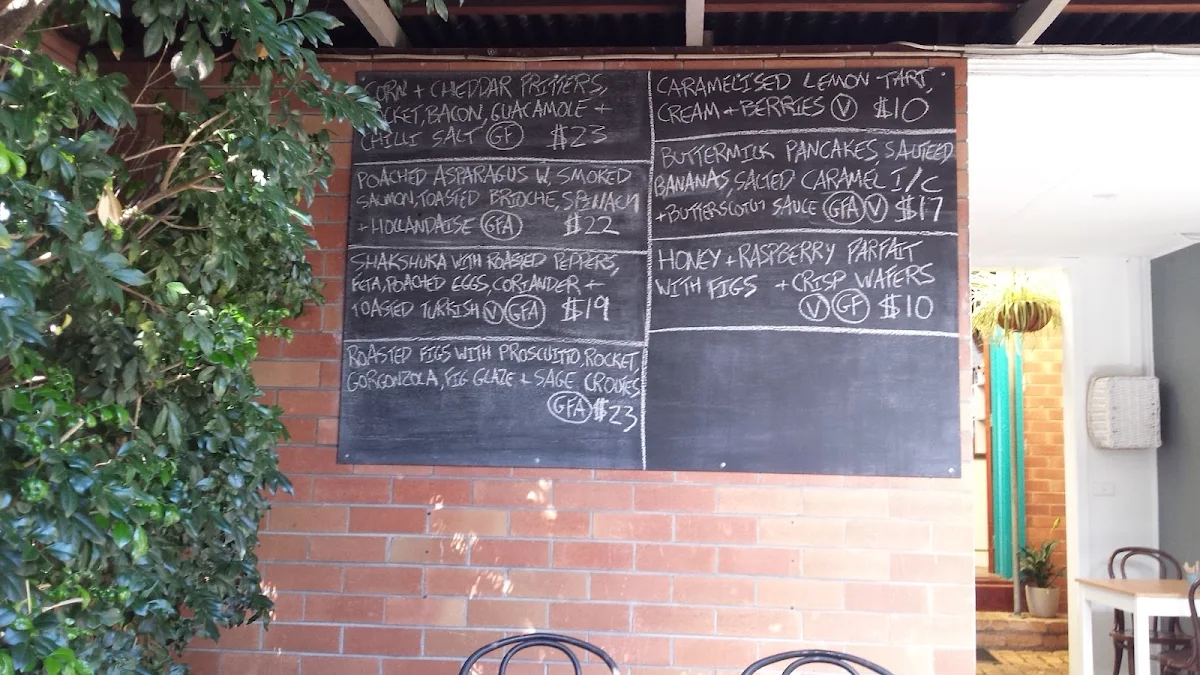 CORN + CHEDDAR FRITTERS,
ROCKET, BACON, GUACAMOLE +
CHILLI SALT GF $23
POACHED ASPARAGUS W. SMOKED
SALMON, TOASTED BRIOCHE, SPINACH
+ HOLLANDAISE GFA $22
SHAKSHUKA WITH ROASTED PEPPERS,
FETA, POACHED EGGS, CORIANDER +
TOASTED TURKISH V GFA $19
ROASTED FIGS WITH PROSCUITTO, ROCKET,
GORGONZOLA, FIG GLAZE + SAGE CROUTES
GFA $23
CARAMELISED LEMON TART,
CREAM + BERRIES V $10
BUTTERMILK PANCAKES, SAUTEED
BANANAS, SALTED CARAMEL I/C
+ BUTTERSCOTCH SAUCE GFA V $17
HONEY + RASPBERRY PARFAIT
WITH FIGS + CRISP WAFERS
V GF $10